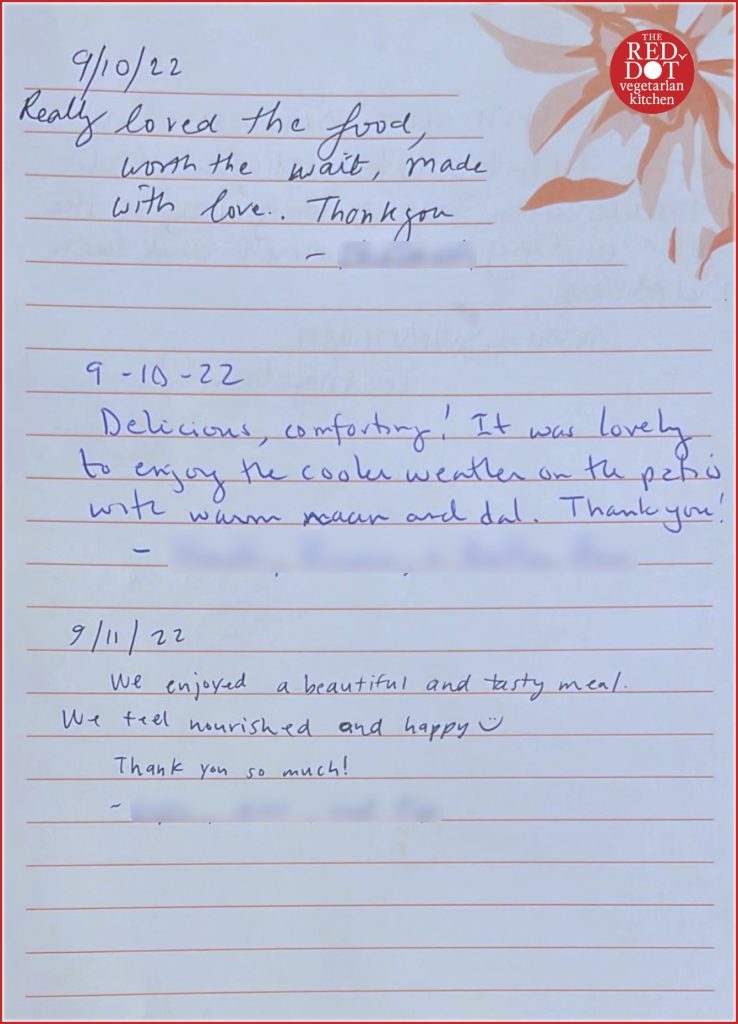 THE
RED
DOT
vegetarian
kitchen
9/10/22
Really loved the food,
worth the wait, made
with love.. Thank you
-
9-10-22
Delicious, comforting! It was lovely
to enjoy the cooler weather on the patio
with warm naan and dal. Thank you!
-
9/11/22
We enjoyed a beautiful and tasty meal.
We feel nourished and happy
Thank you so much!
-